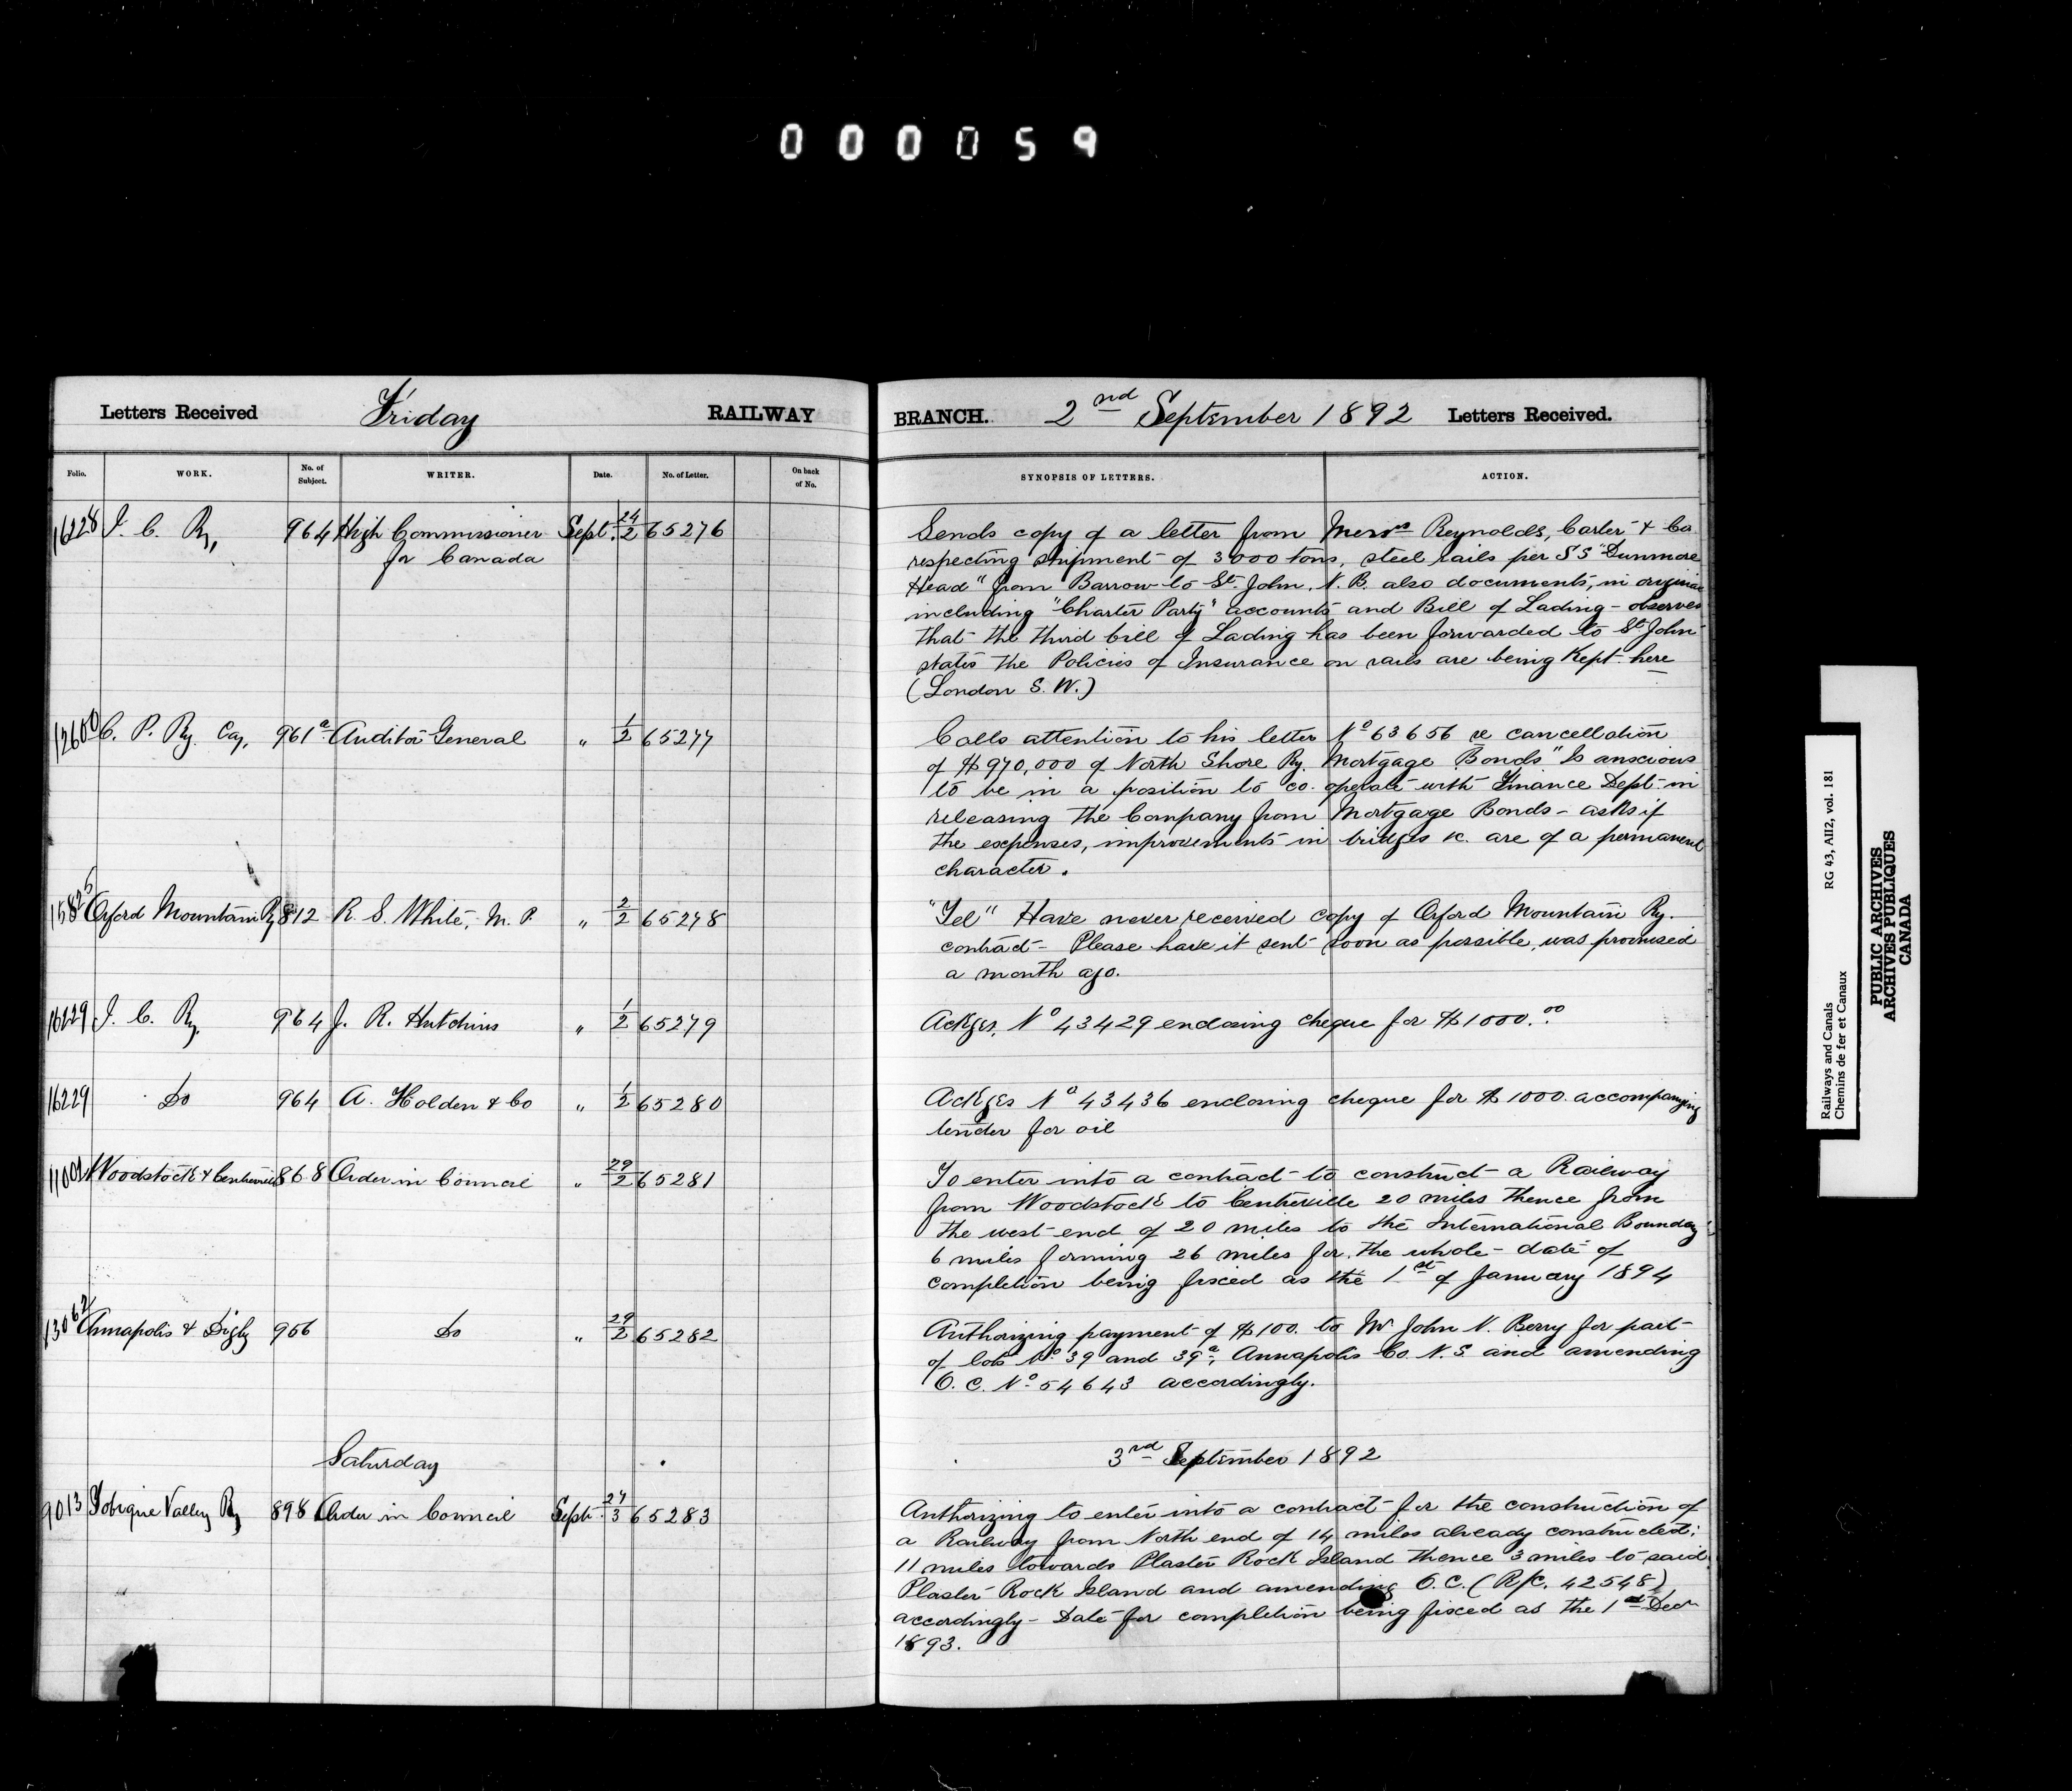 000059
Letters Received Friday RAILWAY
BRANCH. 2nd September 1892 Letters Received.
Folio. WORK. No. of Subject. WRITER. Date. No. of Letter. On back of No.
SYNOPSIS OF LETTERS. ACTION.
16228 I. C. Ry, 964 High Commissioner Sept. 24/2 65276
for Canada
Sends copy of a letter from Messrs Reynolds, Carter & Co
respecting shipment of 3000 tons, steel rails per SS "Dunmore
Head" from Barrow to St. John, N. B. also documents, in original
including "Charter Party" accounts and Bill of Lading - observes
that the third bill of Lading has been forwarded to St John
states the Policies of Insurance on rails are being kept here
(London S. W.)
12600 C. P. Ry. Coy, 961a Auditor General " 1/2 65277
Calls attention to his letter No 63656 re cancellation
of $970,000 of North Shore Ry. Mortgage Bonds" Is anxious
to be in a position to co-operate with Finance Dept in
releasing the Company from Mortgage Bonds - asks if
the expenses, improvements in bridges &c. are of a permanent
character.
Orford Mountain Ry 812 R. S. White, M. P. " 2/2 65278
"Tel" Have never received copy of Orford Mountain Ry.
contract - Please have it sent soon as possible, was promised
a month ago.
16229 I. C. Ry. 964 J. R. Hutchins " 1/2 65279
Ackges. No 43429 enclosing cheque for $1000.00
16229 Do 964 A. Holden & Co " 1/2 65280
Ackges No 43436 enclosing cheque for $1000. accompanying
tender for oil
Woodstock & Centreville 868 Order in Council " 29/2 65281
To enter into a contract to construct a Railway
from Woodstock to Centreville 20 miles thence from
the west end of 20 miles to the International Boundary
6 miles forming 26 miles for the whole - date of
completion being fixed as the 1st of January 1894
13062 Annapolis & Digby 956 Do " 29/2 65282
Authorizing payment of $100. to Mr John N. Berry for part
of lots No 39 and 39a, Annapolis Co. N. S. and amending
O. C. No 54643 accordingly.
Saturday 3rd September 1892
9013 Tobique Valley Ry 898 Order in Council Sept. 27/3 65283
Authorizing to enter into a contract for the construction of
a Railway from North end of 14 miles already constructed;
11 miles towards Plaster Rock Island thence 3 miles to said
Plaster Rock Island and amending O. C. (R/C. 42548)
accordingly - Date for completion being fixed as the 1st Decr
1893.
Railways and Canals RG 43, AII2, vol. 181
Chemins de fer et Canaux
PUBLIC ARCHIVES
ARCHIVES PUBLIQUES
CANADA